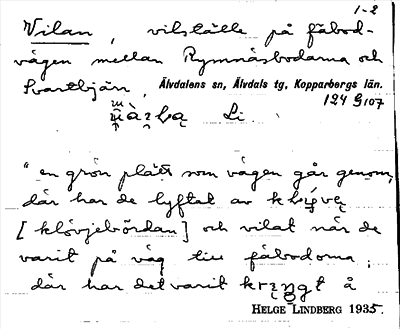 1-2
Vilan, vilställe på fäbod-
vägen mellan Rymnäsbodarna och
Svartbjän, Älvdalens sn, Älvdals tg, Kopparbergs län.
124 G107
Li
"en grön plätt som vägen går genom,
där har de lyftat av
[klövjebördan] och vilat när de
varit på väg till fäbodorna,
där har det varit kringt å
HELGE LINDBERG 1935.